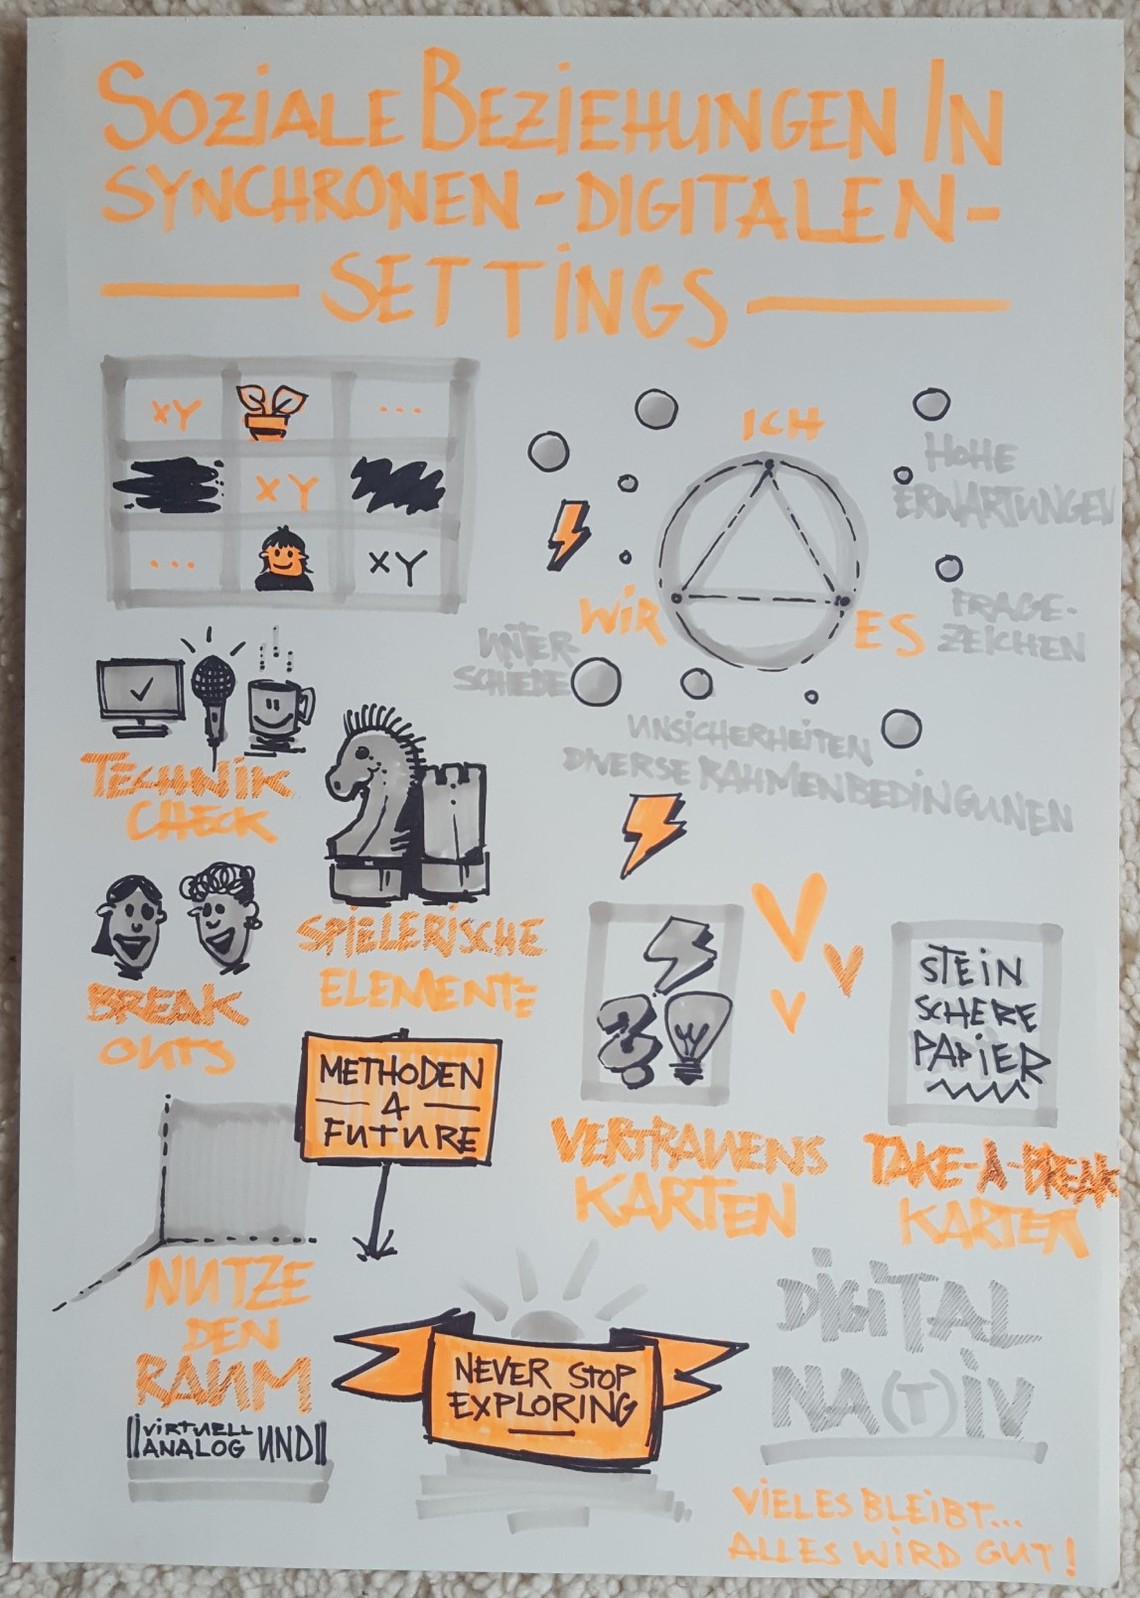 SOZIALE BEZIEHUNGEN IN
SYNCHRONEN-DIGITALEN-
SETTINGS
XY
...
XY
...
XY
ICH
WIR
ES
HOHE
ERWARTUNGEN
FRAGE-
ZEICHEN
UNTER-
SCHIEDE
UNSICHERHEITEN
DIVERSE RAHMENBEDINGUNEN
TECHNIK
CHECK
SPIELERISCHE
ELEMENTE
BREAK
OUTS
METHODEN
4
FUTURE
?
VERTRAUENS
KARTEN
STEIN
SCHERE
PAPIER
TAKE-A-BREAK
KARTEN
NUTZE
DEN
RAUM
VIRTUELL
ANALOG UND
NEVER STOP
EXPLORING
DIGITAL
NA(T)IV
VIELES BLEIBT...
ALLES WIRD GUT!